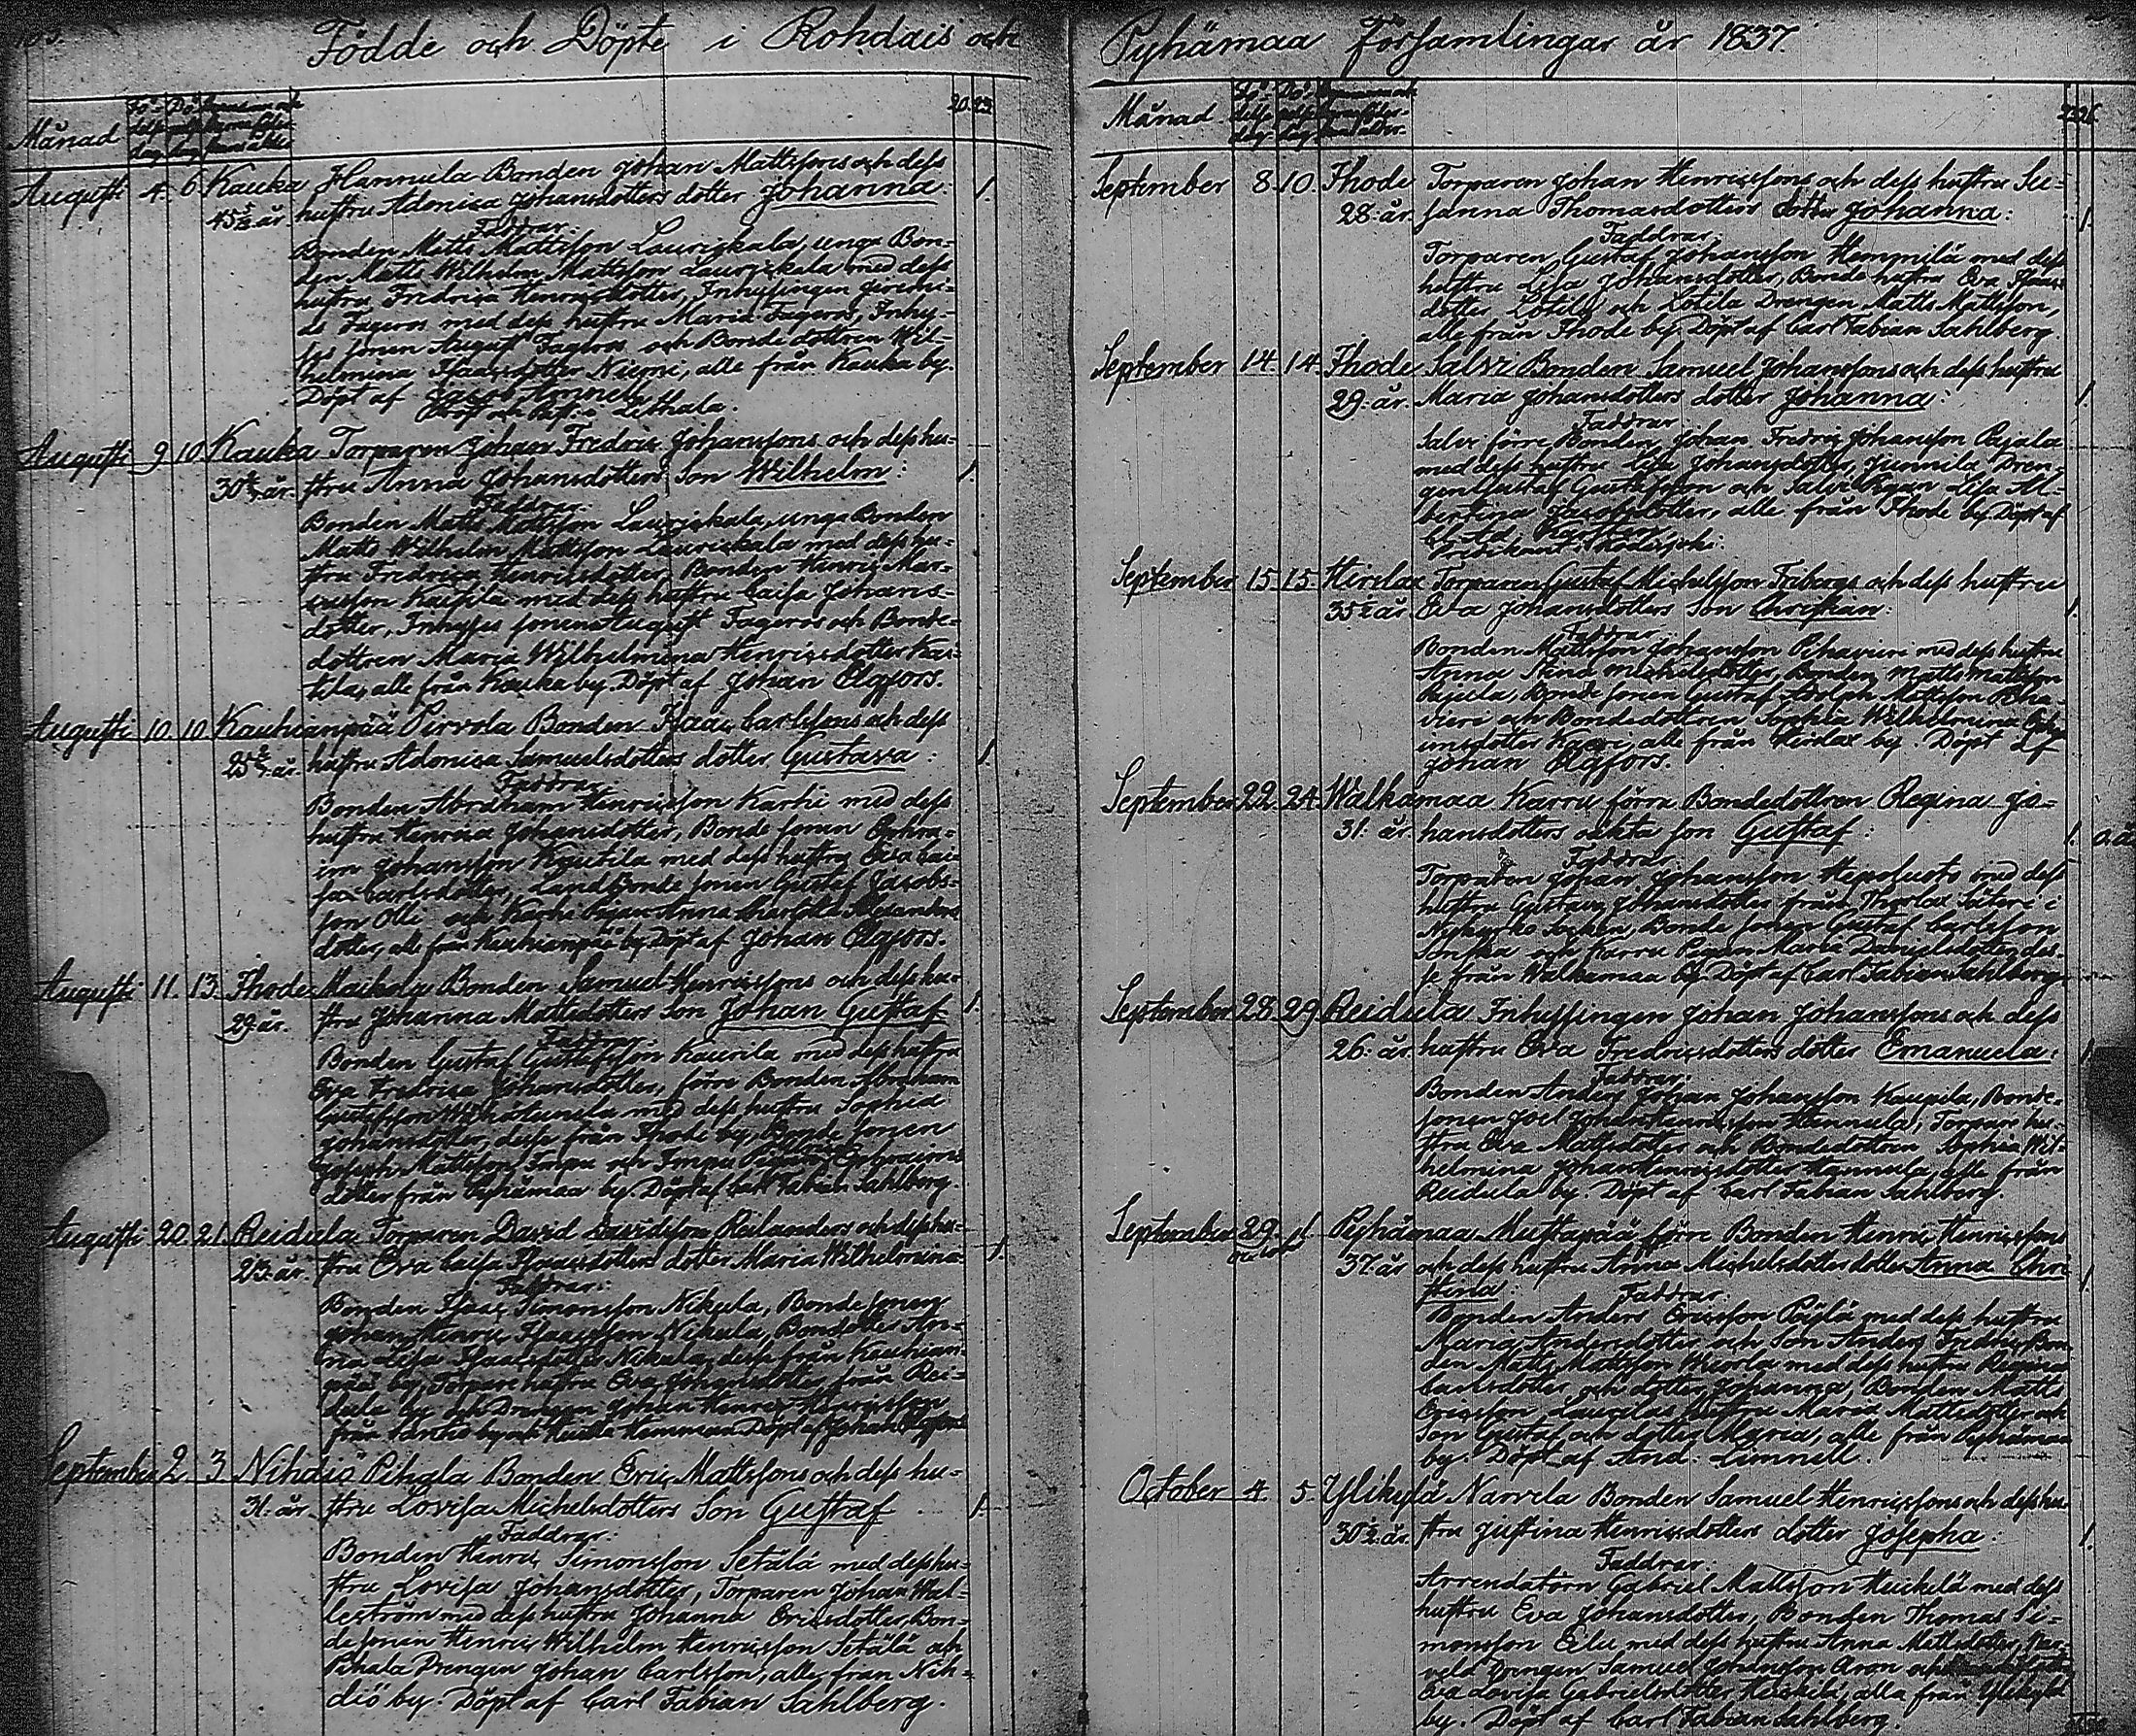 Födde och Döpte i Rohdais och
Månad
20. 23
Augusti 4. 6. Kauka Hannula Bonden Johan Mattssons och dess
45 år. hustru Adonica Johansdotters dotter Johanna. 1.
Faddrar:
Bonden Matts Mattsson Lauriskala, unga Bon-
den Matts Wilhelm Mattsson Lauriskala med dess
hustru Fredrica Henricsdotter, Inhysingen
Fageros med dess hustru Maria Fageros, Inhy-
ses sonen August Fageros och Bonde dottren Wil-
helmina Isaacsdotter Niemi, alle från Kauka by.
Döpt af Jacob
Lethala.
Augusti 9. 10. Kauka Torparen Johan Fredric Johanssons och dess hu-
30 år. stru Anna Johansdotters Son Wilhelm: 1.
Faddrar:
Bonden Matts Mattsson Lauriskala, unga Bonden
Matts Wilhelm Mattsson Lauriskala med dess hu-
stru Fredrica Henricsdotter, Bonden Henric Mar-
cusson Kaisila med dess hustru Caisa Johans-
dotter, Inhyses sonen August Fageros och Bonde-
dottren Maria Wilhelmina Henricsdotter
alle från Kauka by. Döpt af Johan Elgfors.
Augusti 10. 10. Kauhianpää Pirvola Bonden Isaac Carlssons och dess
25 år. hustru Adonica Samuelsdotters dotter Gustava: 1.
Faddrar:
Bonden Abraham Henricsson Karhi med dess
hustru Henrica Johansdotter, Bonde sonen Ephra-
im Johansson Kautila med dess hustru Eva Cai-
sa Carlsdotter, Landbonde sonen Gustaf Jacobs-
son Olli och Karhi Pigan Anna Charlotta Alexanders
dotter, alle från Kauhianpää by. Döpt af Johan Elgfors.
Augusti 11. 13. Ihode Maikola Bonden Samuel Henricssons och dess hu-
29 år. stru Johanna Mattsdotters Son Johan Gustaf 1.
Faddrar:
Bonden Gustaf Gustafsson Kaurila med dess hustru
Eva Fredrica Johansdotter, förre Bonden Abraham
Gustafsson med dess hustru Sophia
Johansdotter, desse från Ihode by, Bonde sonen
Joseph Mattsson Impu och Impu Pigan Ephraims
dotter från Pyhämaa by. Döpt af Carl Fabian Sahlberg.
Augusti 20. 21. Reidula Torparen David Davidsson Reilanders och dess hu-
23. år. stru Eva Caisa Isaacsdotters dotter Maria Wilhelmina 1.
Faddrar:
Bonden Isaac Simonsson Nikula, Bonde sonen
Johan Henric Isaacsson Nikula, Bondedotter An-
na Lisa Isaacsdotter Nikula, desse från Kauhian-
pää by, Torpare hustru Eva Johansdotter från Rei-
dula by och Drengen Johan Henric Henricsson
från
September 2. 3. Nihdiö Pihala Bonden Eric Mattssons och dess hu-
31. år. stru Lovisa Michelsdotters Son Gustaf 1.
Faddrar:
Bonden Henric Simonsson Setälä med dess hu-
stru Lovisa Johansdotter, Torparen Johan Wal-
leström med dess hustru Johanna Ericsdotter, Bon-
de sonen Henric Wilhelm Henricsson Setälä och
Pihala Drengen Johan Carlsson, alle från Nih-
diö by. Döpt af Carl Fabian Sahlberg.
Pyhämaa Församlingar år 1837.
Månad
September 8. 10. Ihode Torparen Johan Henricssons och dess hustru Su-
28. år. sanna Thomasdotters dotter Johanna: 1.
Faddrar:
Torparen Gustaf Johansson Hemmilä med dess
hustru Lisa Johansdotter, Bonde hustru Eva Isaacs
dotter Lotila och Lotila Drengen Matts Mattsson,
alle från Ihode by. Döpt af Carl Fabian Sahlberg.
September 14. 14. Ihode Salvi Bonden Samuel Johanssons och dess hustru
29. år. Maria Johansdotters dotter Johanna: 1.
Faddrar
Salvi förre Bonden Johan Fredric Johansson
med dess hustru Lisa Johansdotter, Junnila Dren-
gen Gustaf Gustafsson och Salvi Pigan Lisa Al-
bertina Jacobsdotter, alle från Ihode by. Döpt af
September 15. 15. Hirslax Torparen Gustaf Michelsson Fribergs och dess hustru
35 år. Eva Johansdotters Son Christian: 1.
Faddrar
Bonden Mattsson Johansson Pihavieri med dess hustru
Anna Stina Michelsdotter, Bonden Matts Mattsson
Bonde sonen Gustaf Mattsson Piha-
vieri och Bondedottren Sophia Wilhelmina
alle från Hirslax by. Döpt af
Johan Elgfors.
September 22. 24. Walkamaa Karru förre Bondedottren Regina Jo-
31. år. hansdotters oäkta son Gustaf: 1. o.äk
Faddrar
Torparen Johan Johansson med dess
hustru Gustava Johansdotter från Säteri i
Nykyrko Socken, Bonde sonen Gustaf Carlsson
och Karru Pigan Maria Danielsdotter, des-
se från Walkamaa by. Döpt af Carl Fabian Sahlberg.
September 28. 29. Reidula Inhysingen Johan Johanssons och dess
26. år. hustru Eva Fredricsdotters dotter Emanuela: 1.
Faddrar:
Bonden Anders Johan Johansson Kaupila, Bonde-
sonen Joel Johan Henricsson Hannula, Torpare hu-
stru Eva Mattsdotter och Bondedottren Sophia Wil-
helmina Johan Henricsdotter Hannula, alle från
Reidula by. Döpt af Carl Fabian Sahlberg.
September 29. 1. Pyhämaa Mustapää förre Bonden Henric Henricssons
37. år och dess hustru Anna Michelsdotters dotter Anna Chri-
stina: Faddrar: 1.
Bonden Anders Ericsson med dess hustru
Maria Andersdotter och Son Anders Fredric, Bon-
den Matts Mattsson med dess hustru Regina
Carlsdotter och dotter Johanna, Bonden Matts
Ericsson Laurila, hustru Maria Mattsdotter och
Son Gustaf och dotter Maria, alle från Pyhämaa
by. Döpt af And. Limnell.
October 4. 5. Ylikylä Narvela Bonden Samuel Henricssons och dess hu-
30 ½ år. stru Justina Henricsdotters dotter Josepha: 1.
Faddrar:
Arrendatorn Gabriel Mattsson Heickelä med dess
hustru Eva Johansdotter, Bonden Thomas Si-
monsson Eelu med dess hustru Anna Mattsdotter, Nar-
vela Drengen Samuel Johansson Aron och
Eva Lovisa Gabrielsdotter Heickelä, alla från Ylikylä
by. Döpt af Carl Fabian Sahlberg.